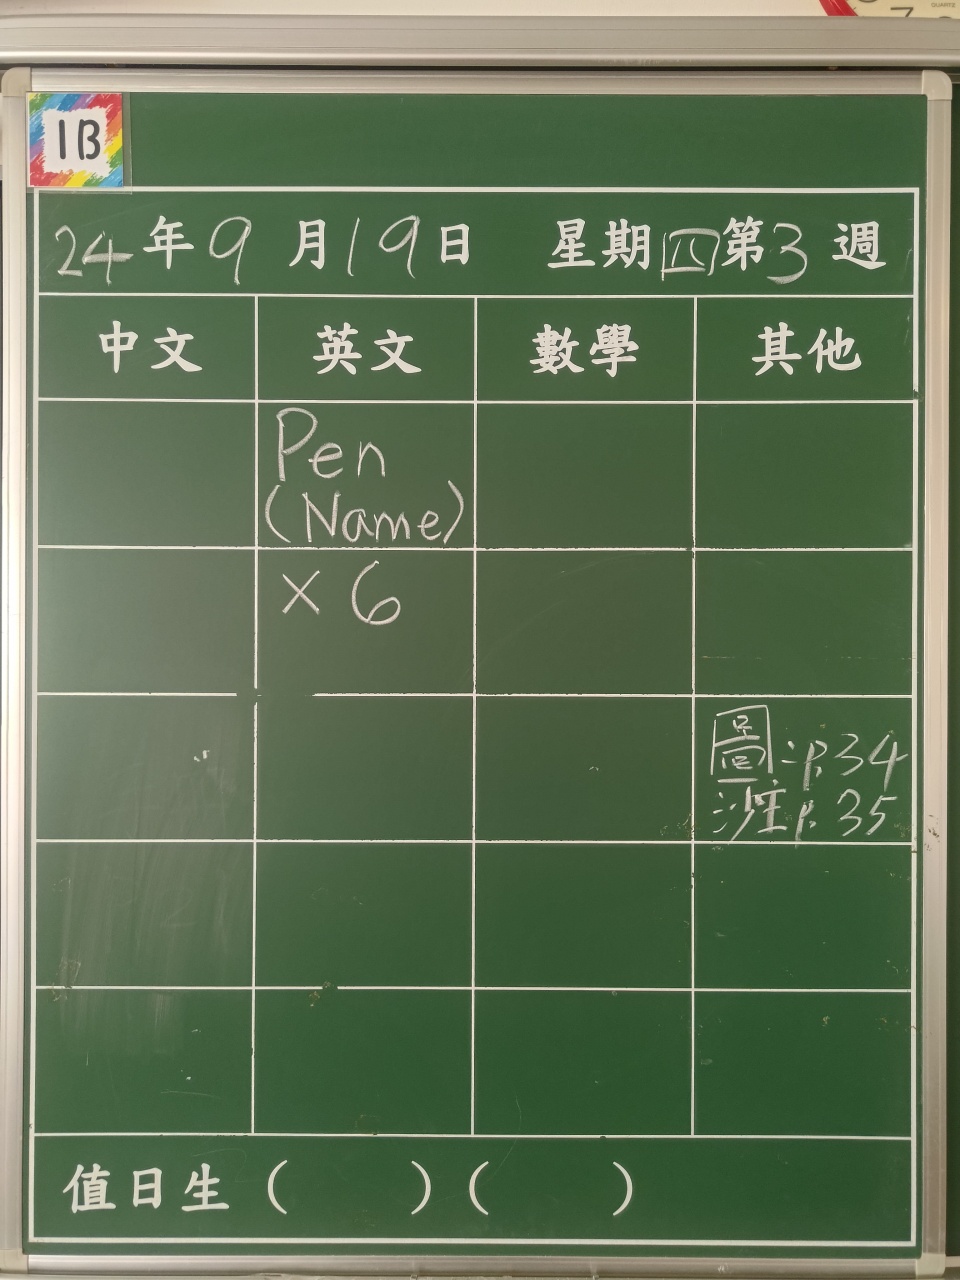 1B
24年9月19日 星期四第3週
中文 英文 數學 其他
Pen
(Name)
× 6
圖:P.34
P.35
值日生 ( ) ( )